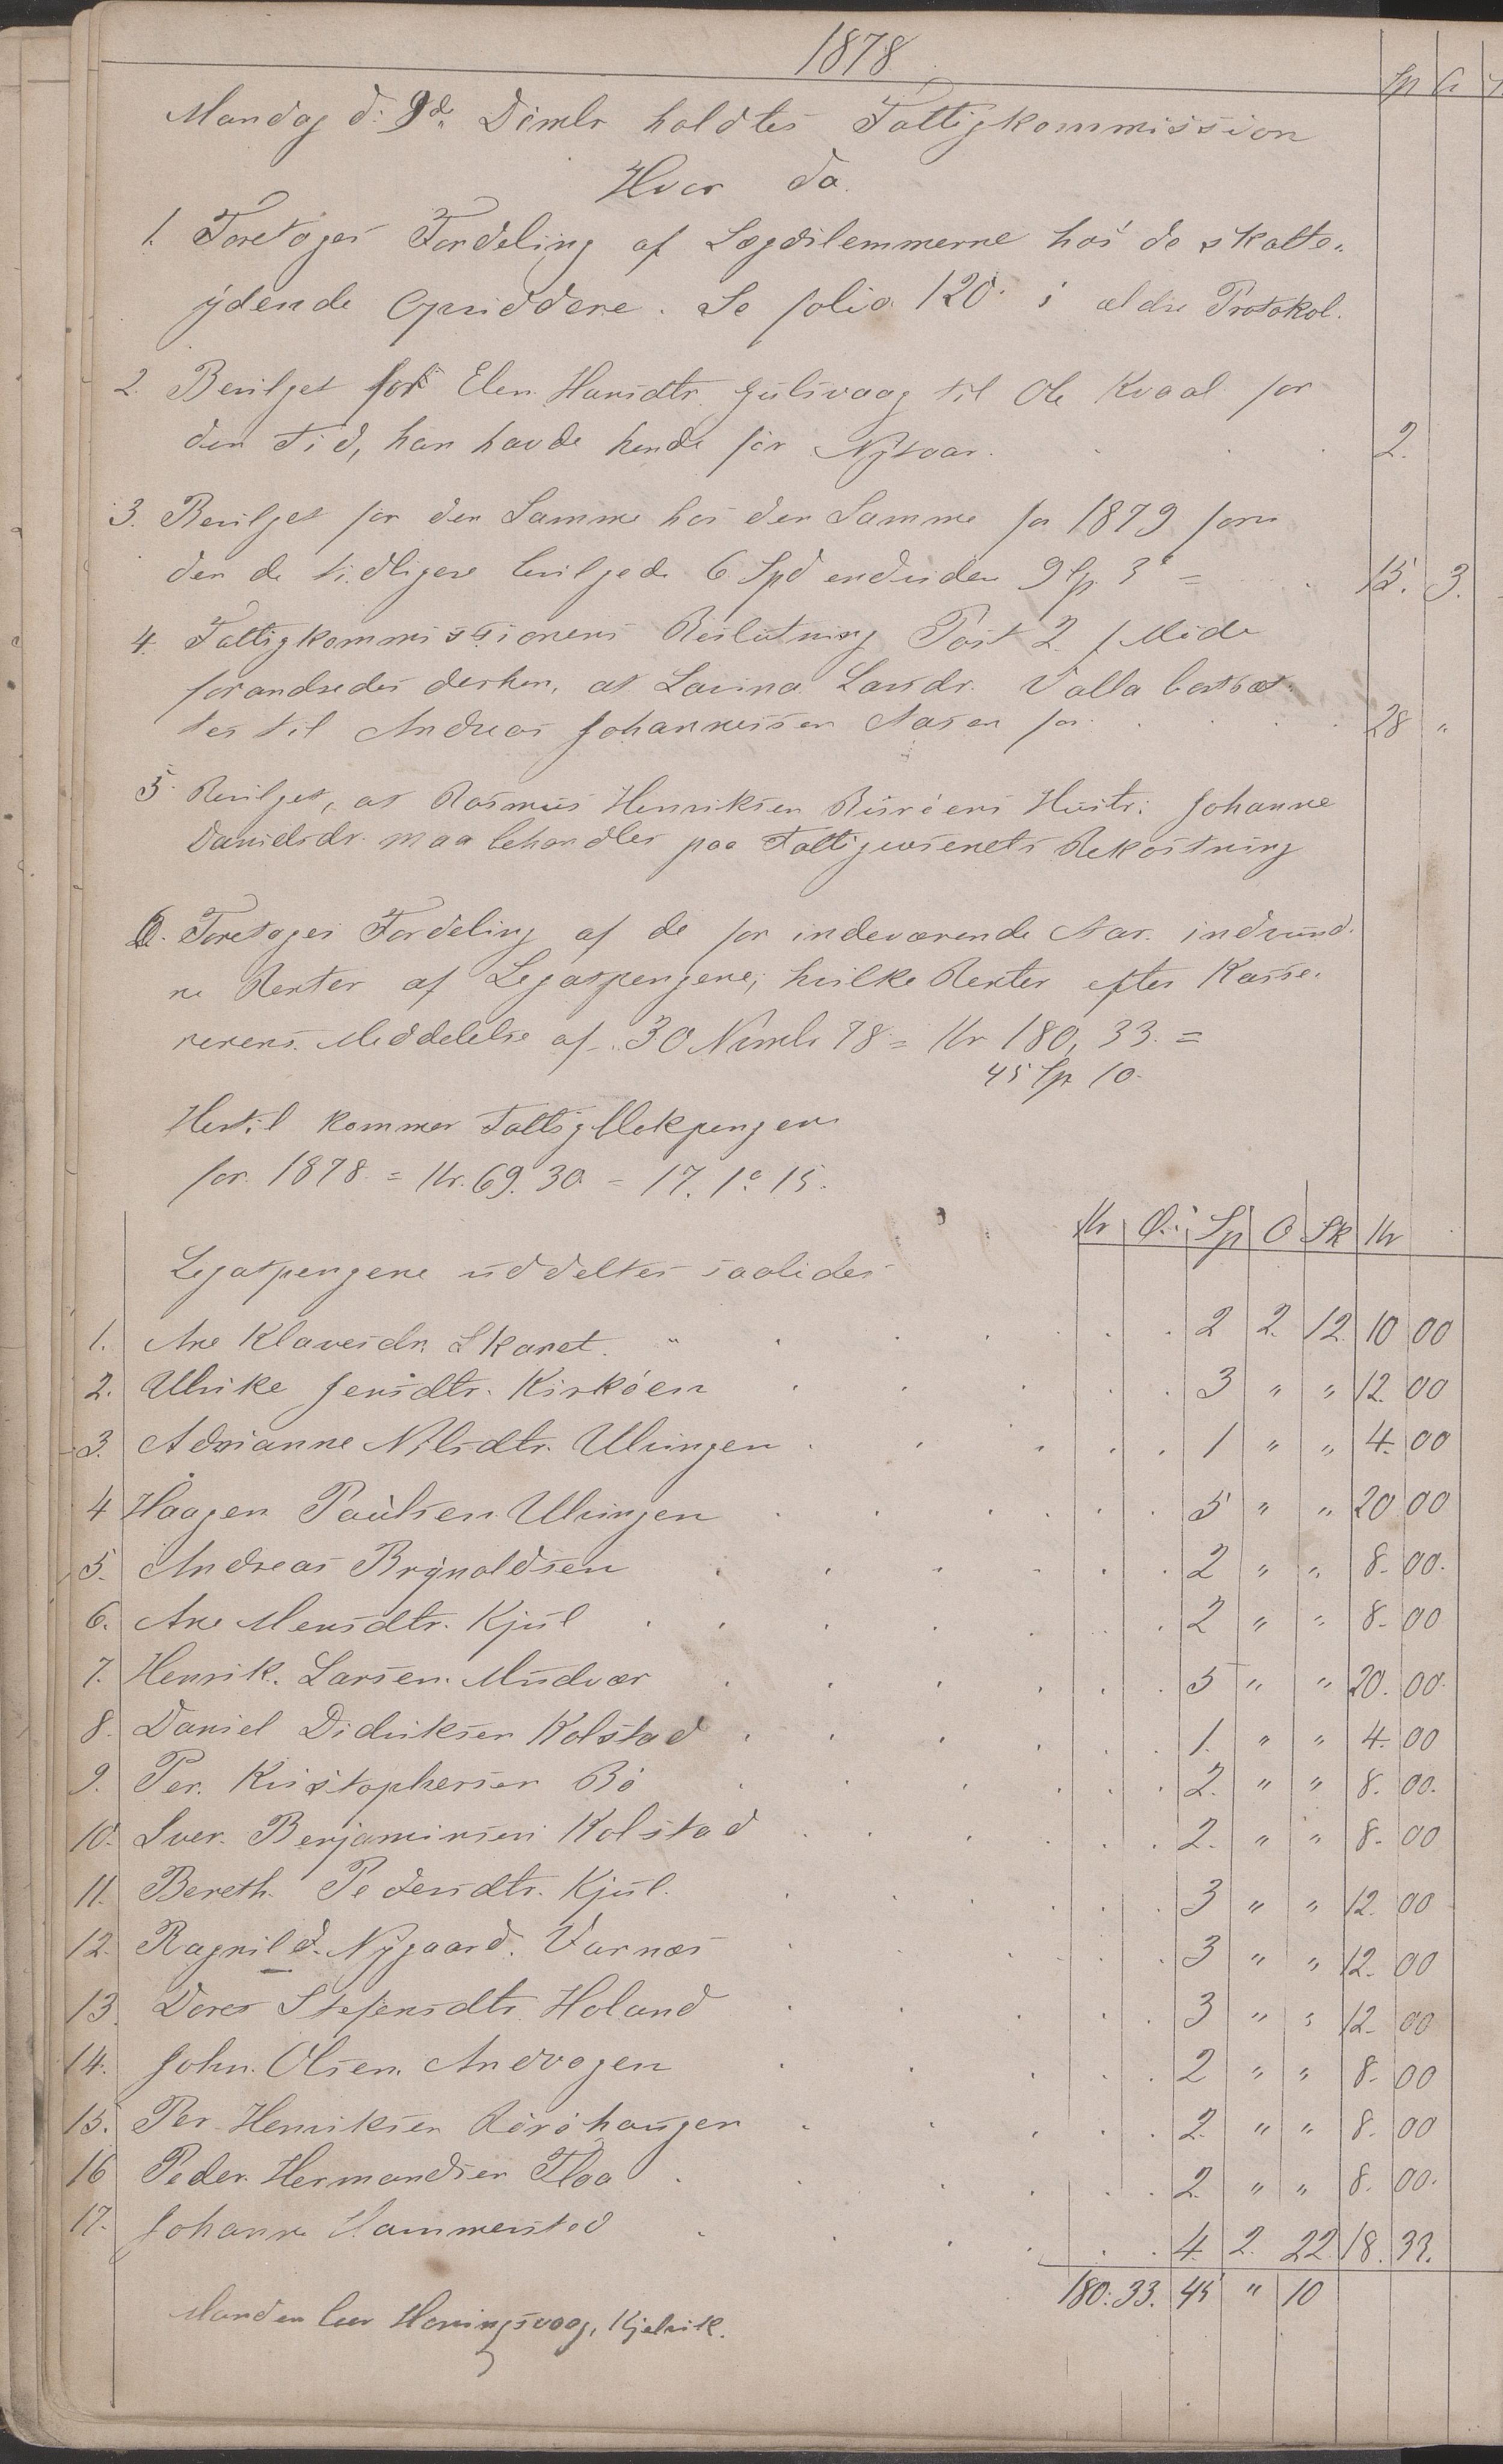 1878
Sp O
Mandag d: 9de Dcmbr holdtes Fattigkommission
Hvor da
1. Foretoges Fordeling af Lægdslemmerne hos de skatte-
ydende Opsiddere. Se folio 120 i ældre Protokol.
2. Bevilget for Elen Hansdtr. Gulsvaag til Ole Kvaal for
den Tid, han havde hende før Nytaar. 2.
3. Bevilget for den Samme hos den Samme for 1879 foru
den de tidligere bevilgede 6 Spd endvidere 9 Sp. 3 o = 15. 3.
4. Fattigkommissionens Beslutning Post 2 f Møde
forandredes derhen, at Lavina Larsdr. Valla bortsæt-
tes til Andreas Johannessen Aasen for 28 "
5. Bevilget, at Rasmus Henriksen Buröens Hustr: Johanne
Danielsdr. maa behandles paa Fattigvæsenets Bekostning
6. Foretoges Fordeling af de for indeværende Aar indvund-
ne Renter af Legatpengene, hvilke Renter efter Kasse-
rerens Meddelelse af 30 Nvmbr 78 = Kr 180, 33. =
45 Sp 10.
Hertil kommer Fattigblokpengene
for 1878 = Kr. 69. 30 = 17. 1 o 15.
Kr Ö. Sp O Sk Kr
Legatpengene uddeltes saaledes
1. Ane Klavesdr. Skaret. " 2 2. 12 10 00
2. Ulrike Jensdtr. Kirköen 3 " " 12. 00
3. Adrianne Nilsdtr. Ulvingen 1 " " 4. 00
4 Haagen Paulsen Ulvingen 5 " " 20 00
5. Andreas Brynoldsen 2 " " 8. 00.
6. Ane Mensdtr. Kjul 2 " " 8. 00
7. Henrik Larsen Mudvær 5 " " 20. 00.
8. Daniel Didriksen Kolstad 1. " " 4. 00
9. Per. Kristophersen Bö 2. " " 8. 00.
10. Sver. Benjaminsen Kolstad 2. " " 8. 00
11. Bereth Pedersdtr. Kjul. 3 " " 12. 00
12. Ragnild. Nygaard. Varnæs 3 " " 12. 00
13. Dores Stefensdtr. Holand 3 " " 12. 00
14. John. Olsen. Andvagen 2 " " 8. 00
15. Per Henriksen Röröhaugen 2. " " 8. 00
16 Peder Hermandsen Floa 2. " " 8. 00.
17. Johanne Hammerstad 4. 2. 22 18. 33.
180. 33. 45 " 10
Manden bor Honingsvaag, Kjelvik.